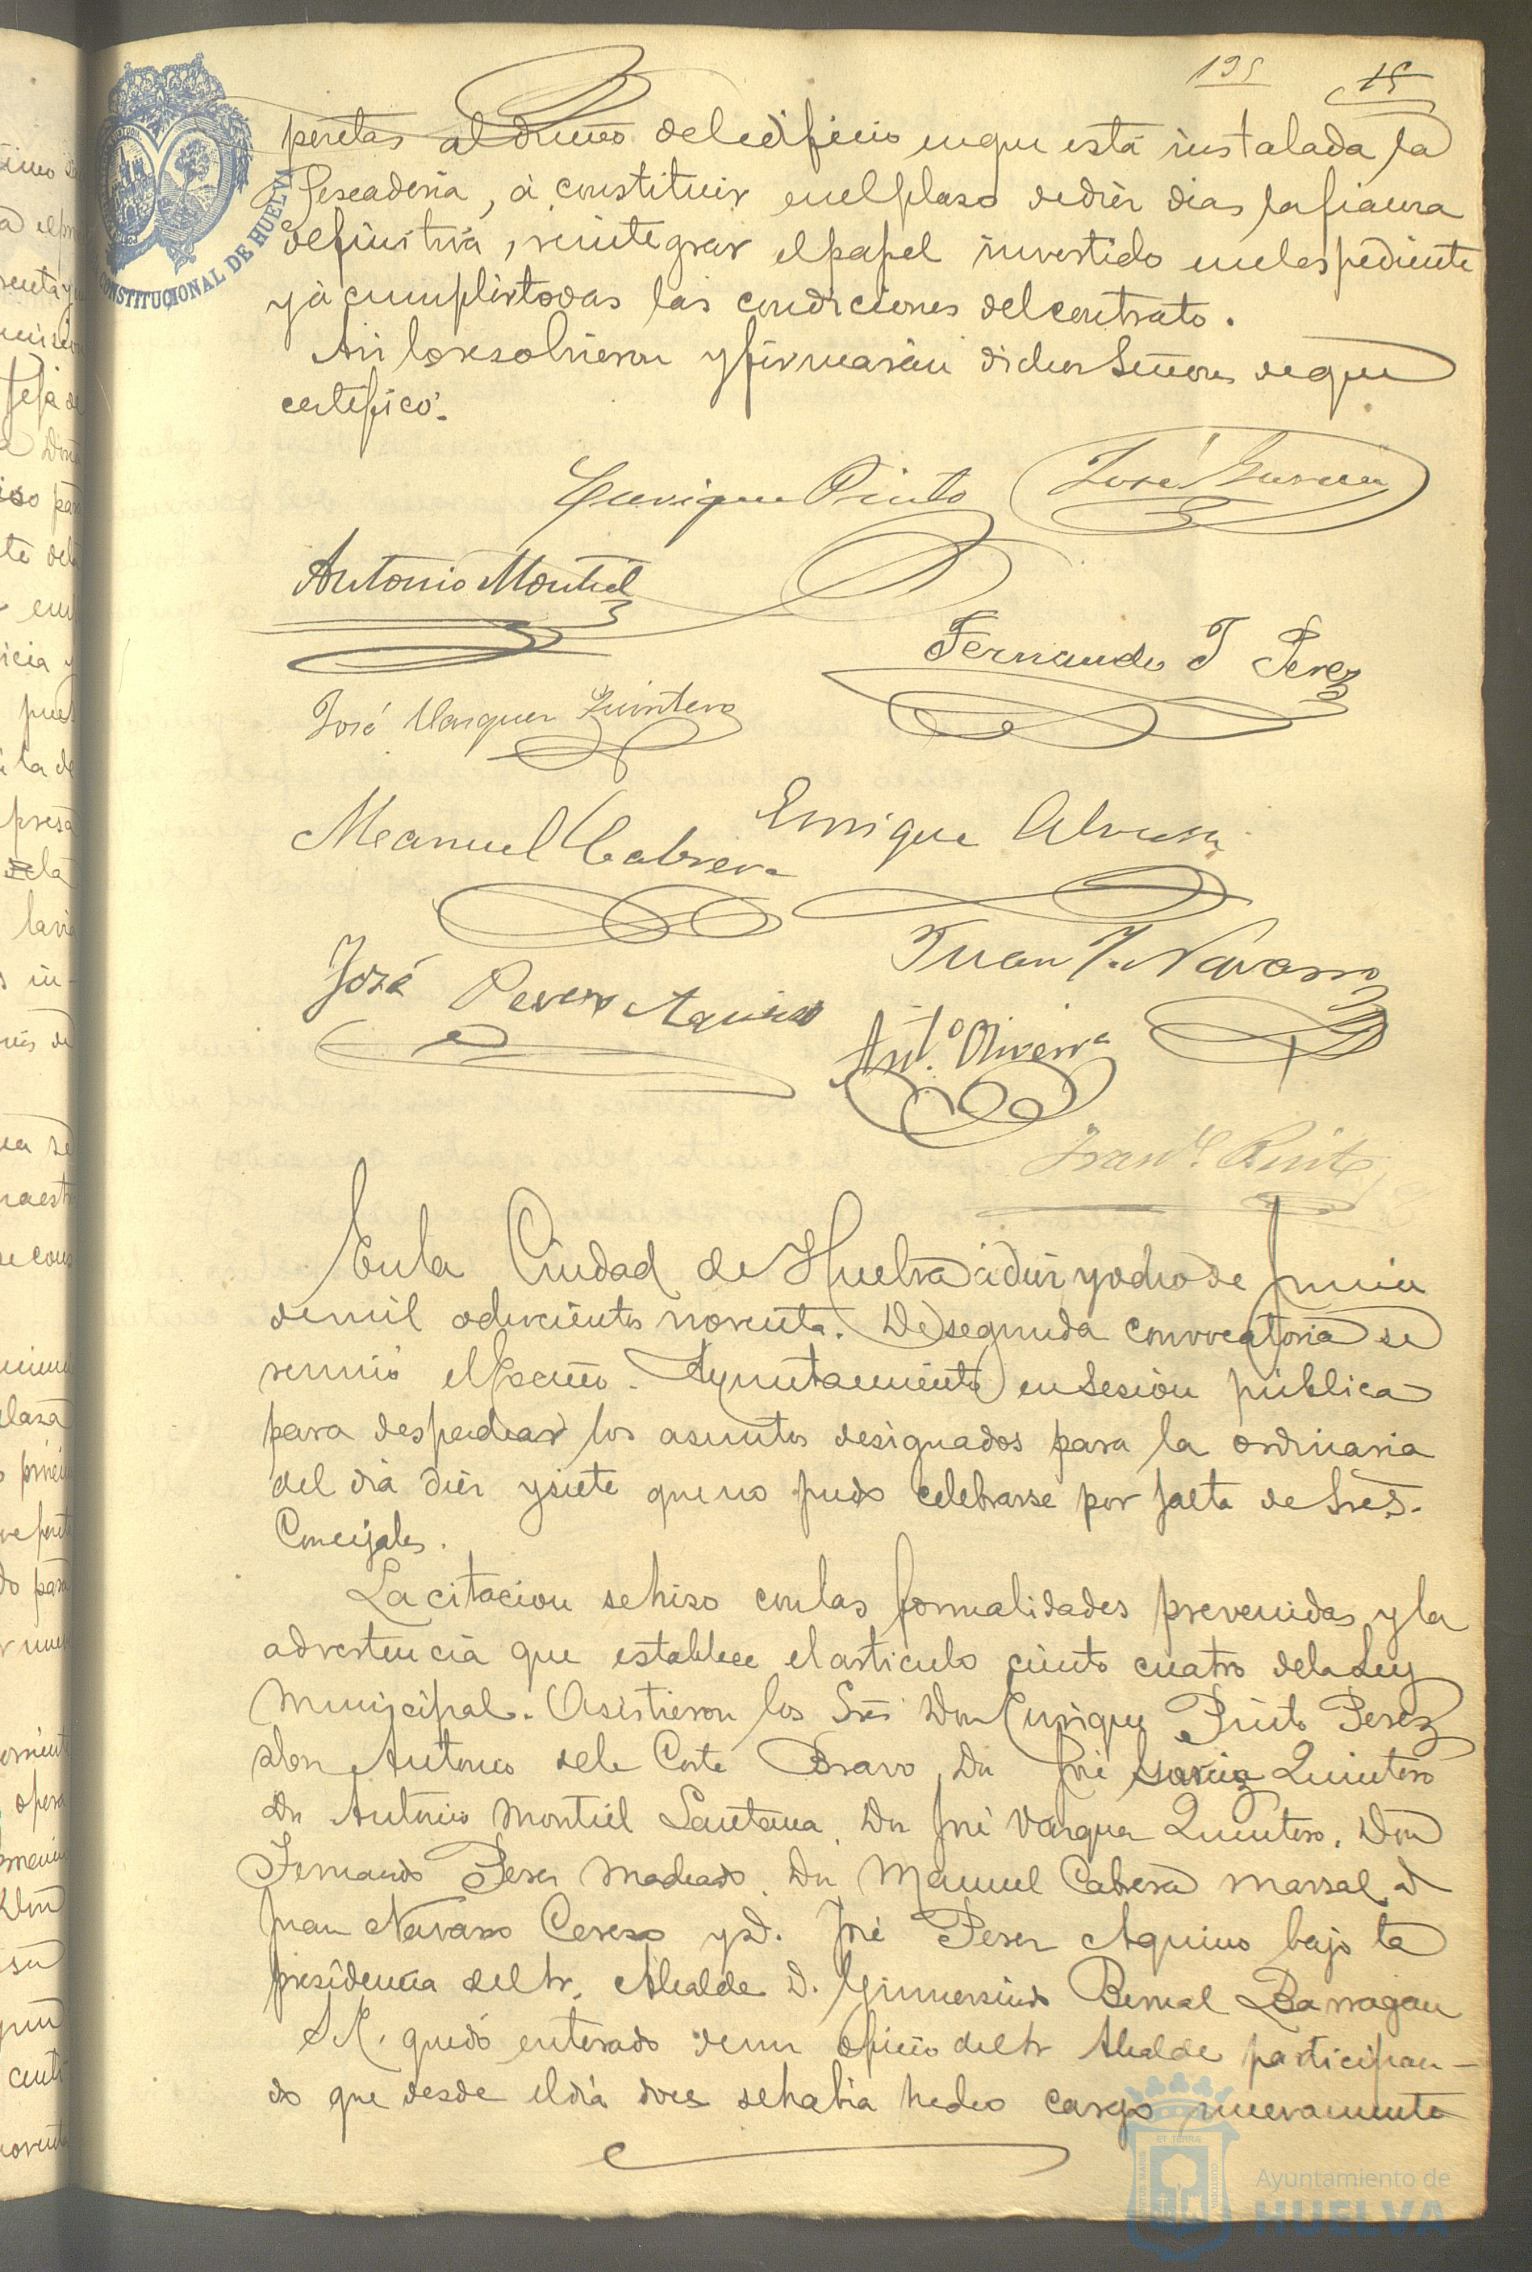 195 15
pesetas al dueño del edificio en que está instalada la
Pescaderia, á constituir en el plaso de diez dias la fianza
definitiva, reintegrar el papel invertido en el espediente
y á cumplir todas las condiciones del contrato.
Asi lo resolvieron y firmarán dichos Señores de que
certifico.
Enrique Pinto José Garcia
Antonio Montiel
Fernando T Perez
José Vazquez Quintero
Manuel Cabrera Enrique
José Perez Aquino Juan J. Navarro
Ant.º Oliveira
CONSTITUCIONAL DE HUELVA
En la Ciudad de Huelva á diez y ocho de Junio
de mil ochocientos noventa. De segunda convocatoria se
reunió el Excmo. Ayuntamiento en Sesion pública
para despachar los asuntos designados para la ordinaria
del dia diez y siete que no pudo celebrarse por falta de Sres.
Concejales.
La citacion se hiso con las formalidades prevenidas y la
advertencia que establece el articulo ciento cuatro de la Ley
Municipal. Asistieron los Sres Don Enrique Pinto Perez
Don Antonio de la Corte Bravo, Dn José Garcia Quintero
Dn Antonio Montiel Santana, Dn José Vazquez Quintero, Don
Fernando Perez Machado, Dn Manuel Cabrera Marsal, D
Juan Navarro Cereso y D. José Perez Aquino bajo la
presidencia del Sr. Alcalde D. Gumersindo Bernal Barragan
S. E. quedó enterado de un oficio del Sr Alcalde participan-
do que desde el dia doce se habia hecho cargo nuevamente
Ayuntamiento de
HUELVA